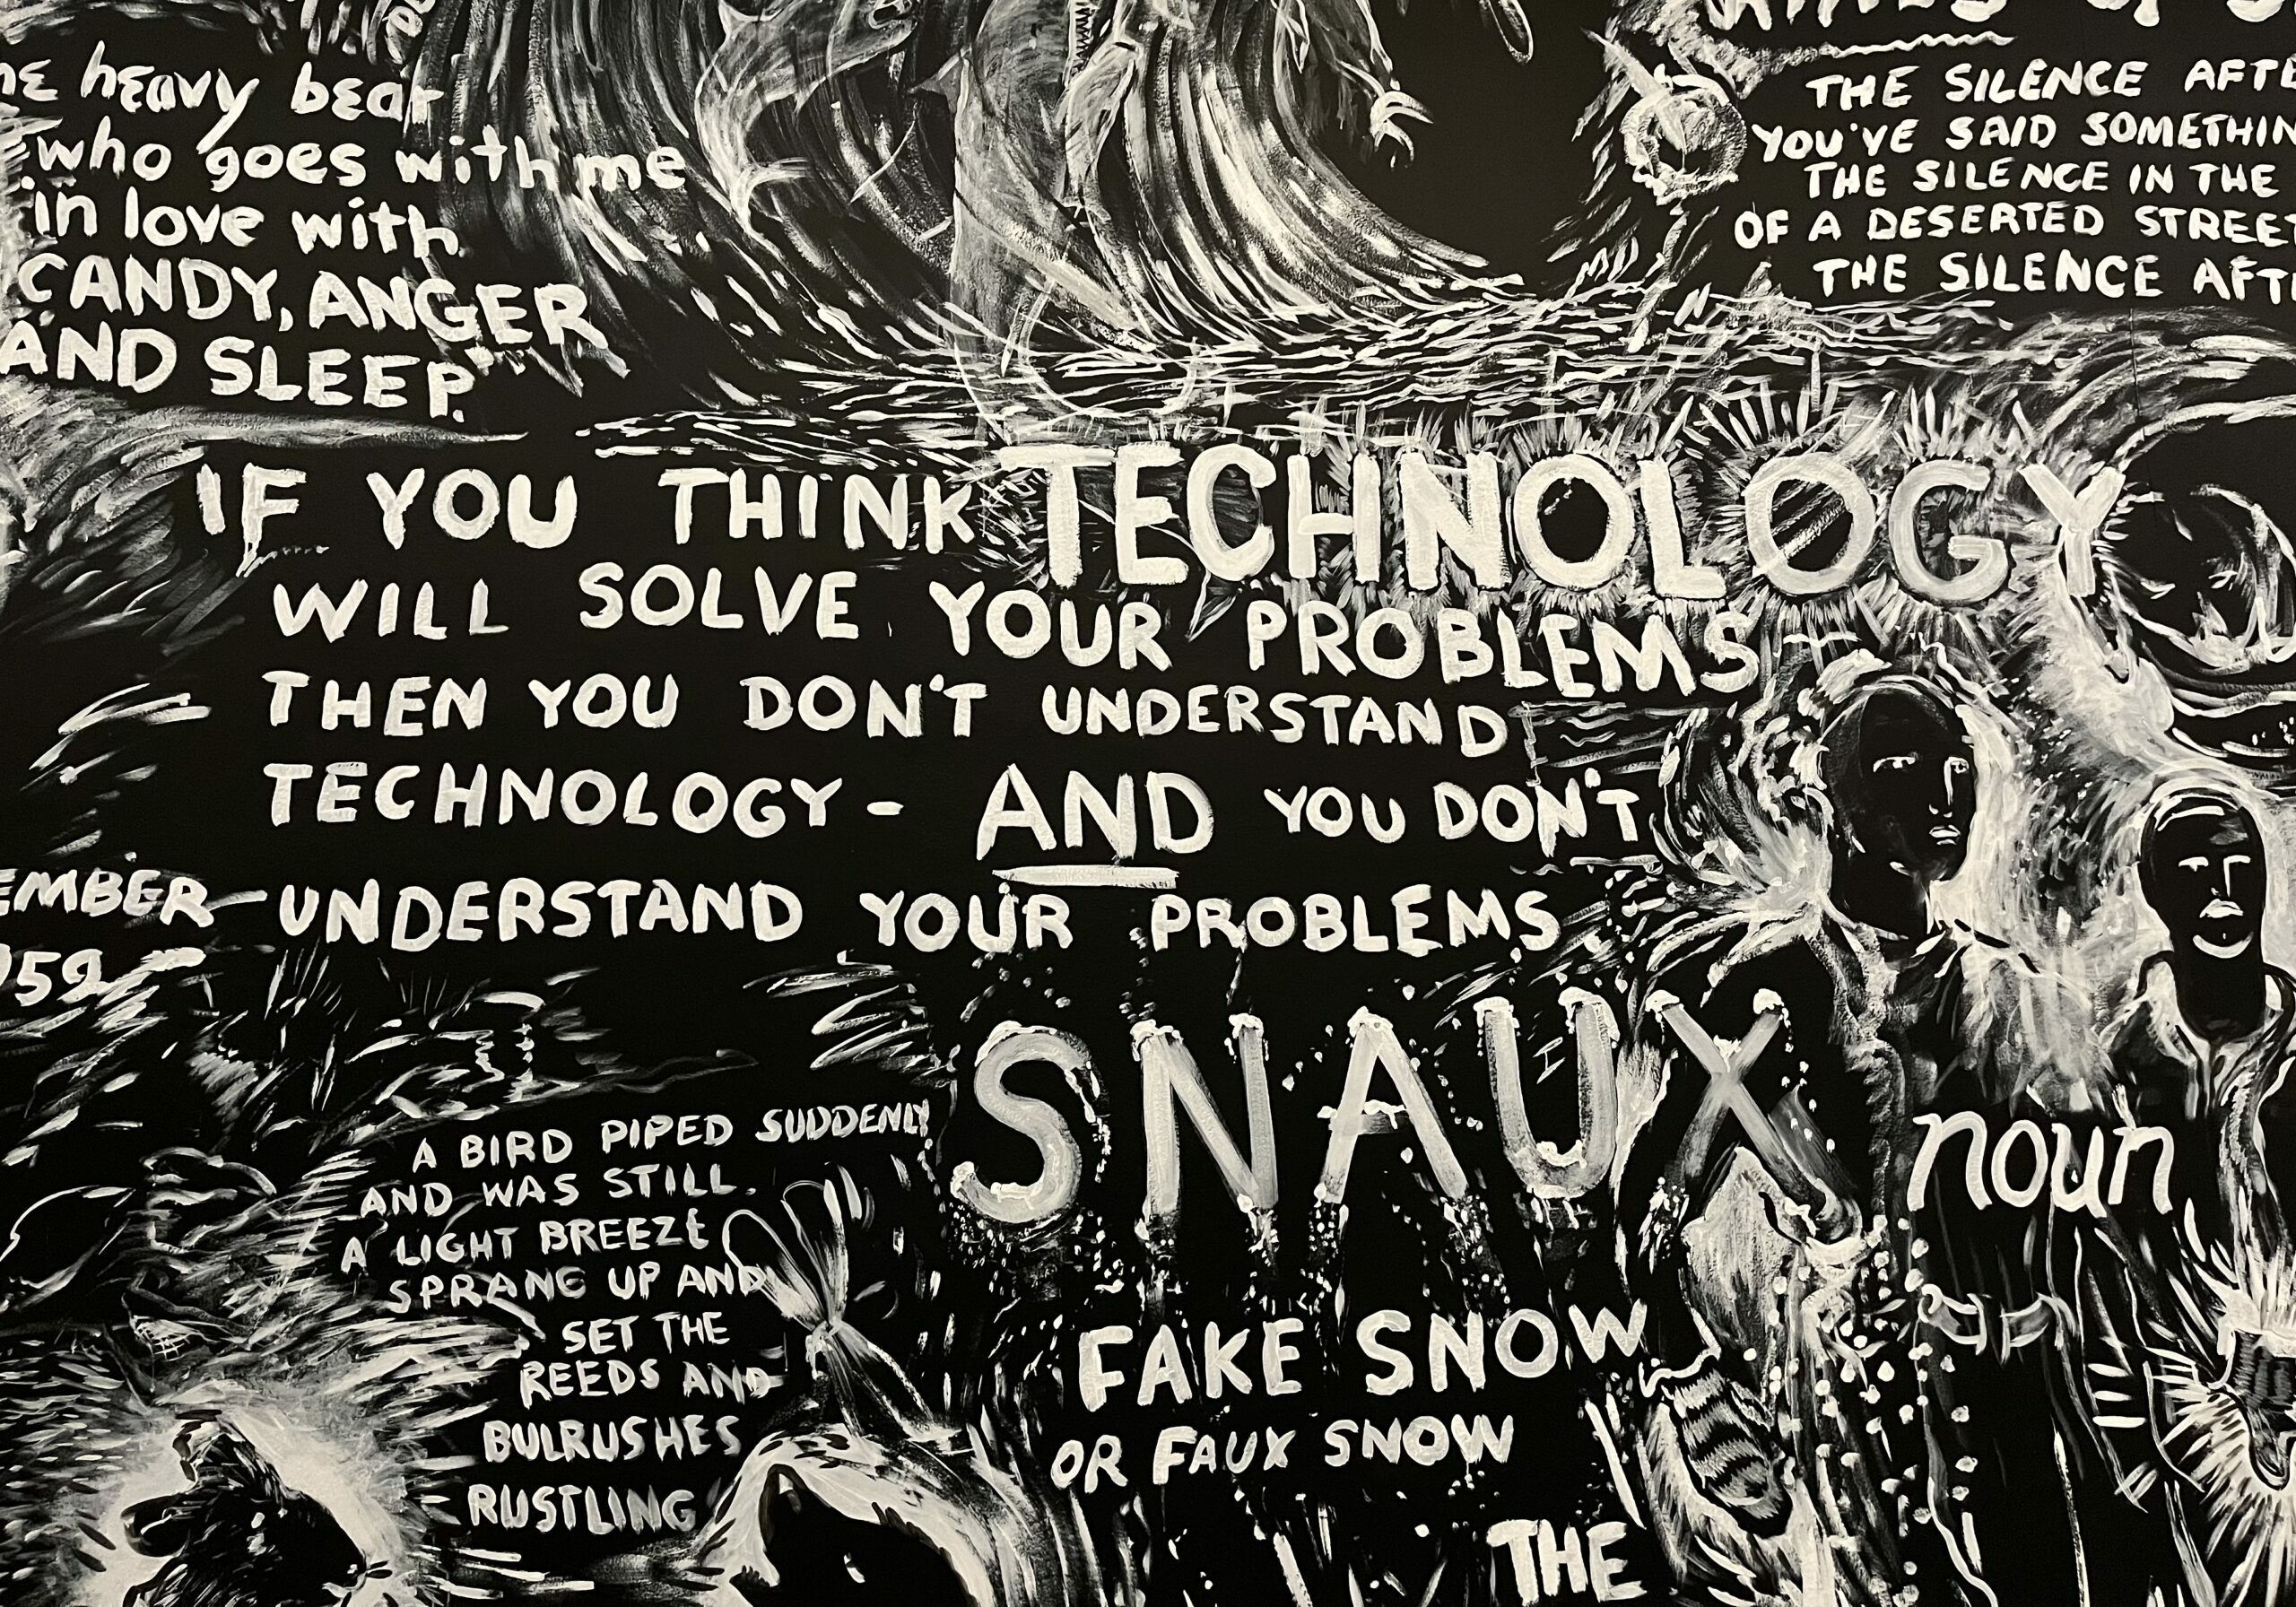 heavy bear
who goes with me
in love with
CANDY, ANGER
AND SLEEP."
THE SILENCE AFTE
YOU'VE SAID SOMETHIN
THE SILENCE IN THE
OF A DESERTED STREET
THE SILENCE AFT
IF YOU THINK TECHNOLOGY
WILL SOLVE YOUR PROBLEMS
THEN YOU DON'T UNDERSTAND
TECHNOLOGY - AND YOU DON'T
UNDERSTAND YOUR PROBLEMS
EMBER
959
SNAUX noun
FAKE SNOW
OR FAUX SNOW
THE
A BIRD PIPED SUDDENLY
AND WAS STILL.
A LIGHT BREEZE
SPRANG UP AND
SET THE
REEDS AND
BULRUSHES
RUSTLING